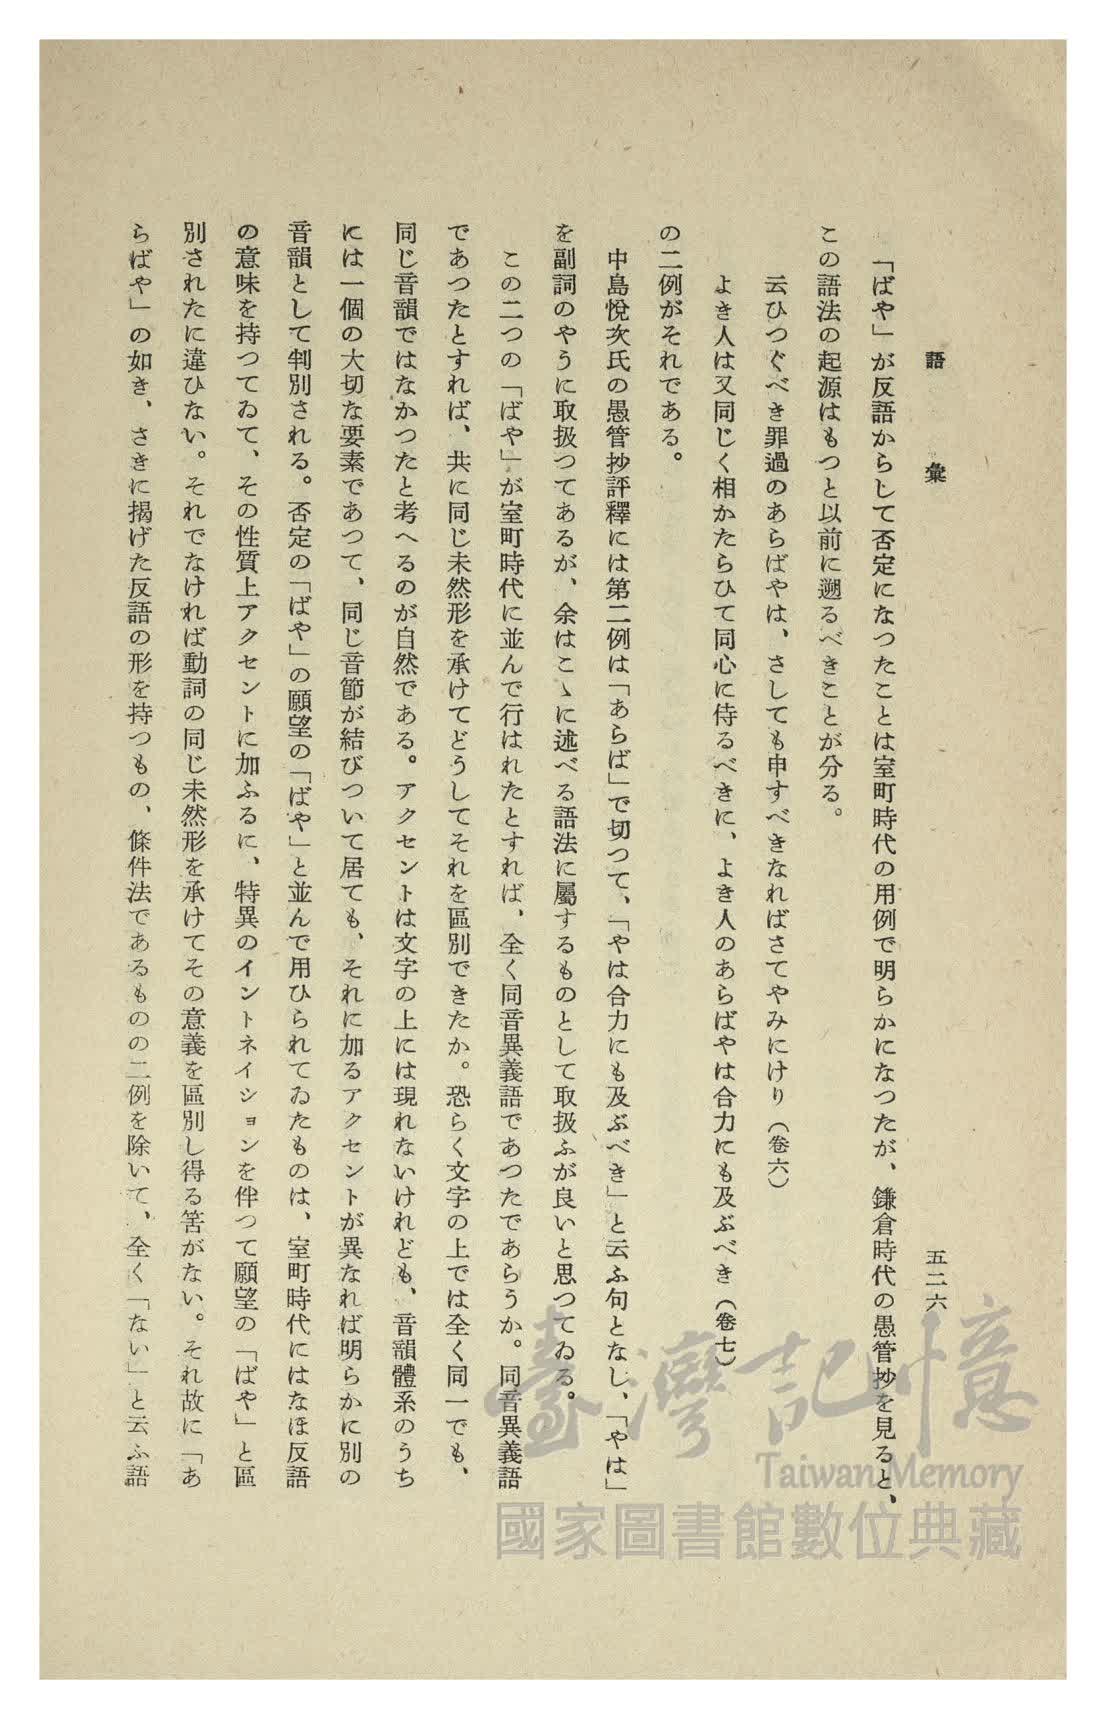 語彙
五二六
「ばや」が反語からして否定になつたことは室町時代の用例で明らかになつたが、鎌倉時代の愚管抄を見ると、
この語法の起源はもつと以前に遡るべきことが分る。
云ひつぐべき罪過のあらばやは、さしても申すべきなればさてやみにけり（卷六）
よき人は又同じく相かたらひて同心に侍るべきに、よき人のあらばやは合力にも及ぶべき（卷七）
の二例がそれである。
中島悅次氏の愚管抄評釋には第二例は「あらば」で切つて、「やは合力にも及ぶべき」と云ふ句となし、「やは」
を副詞のやうに取扱つてあるが、余はこゝに述べる語法に屬するものとして取扱ふが良いと思つてゐる。
この二つの「ばや」が室町時代に並んで行はれたとすれば、全く同音異義語であつたであらうか。同音異義語
であつたとすれば、共に同じ未然形を承けてどうしてそれを區別できたか。恐らく文字の上では全く同一でも、
同じ音韻ではなかつたと考へるのが自然である。アクセントは文字の上には現れないけれども、音韻體系のうち
には一個の大切な要素であつて、同じ音節が結びついて居ても、それに加るアクセントが異なれば明らかに別の
音韻として判別される。否定の「ばや」の願望の「ばや」と並んで用ひられてゐたものは、室町時代にはなほ反語
の意味を持つてゐて、その性質上アクセントに加ふるに、特異のイントネイションを伴つて願望の「ばや」と區
別されたに違ひない。それでなければ動詞の同じ未然形を承けてその意義を區別し得る筈がない。それ故に「あ
らばや」の如き、さきに揭げた反語の形を持つもの、條件法であるものの二例を除いて、全く「ない」と云ふ語
臺灣記憶
Taiwan Memory
國家圖書館數位典藏